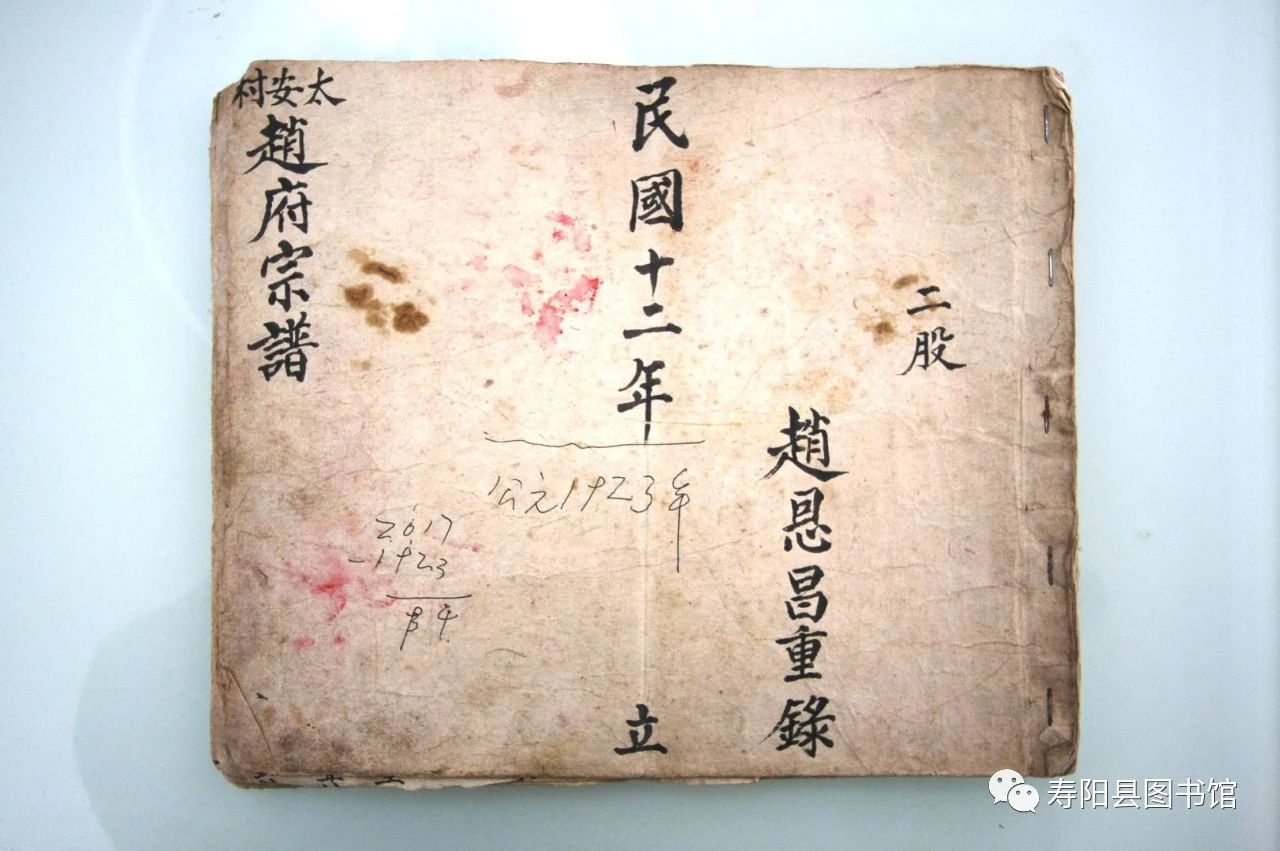 二股
趙恩昌重錄
民國十二年
立
公元1923年
2017
-1923
94
太安村
趙府宗譜
寿阳县图书馆